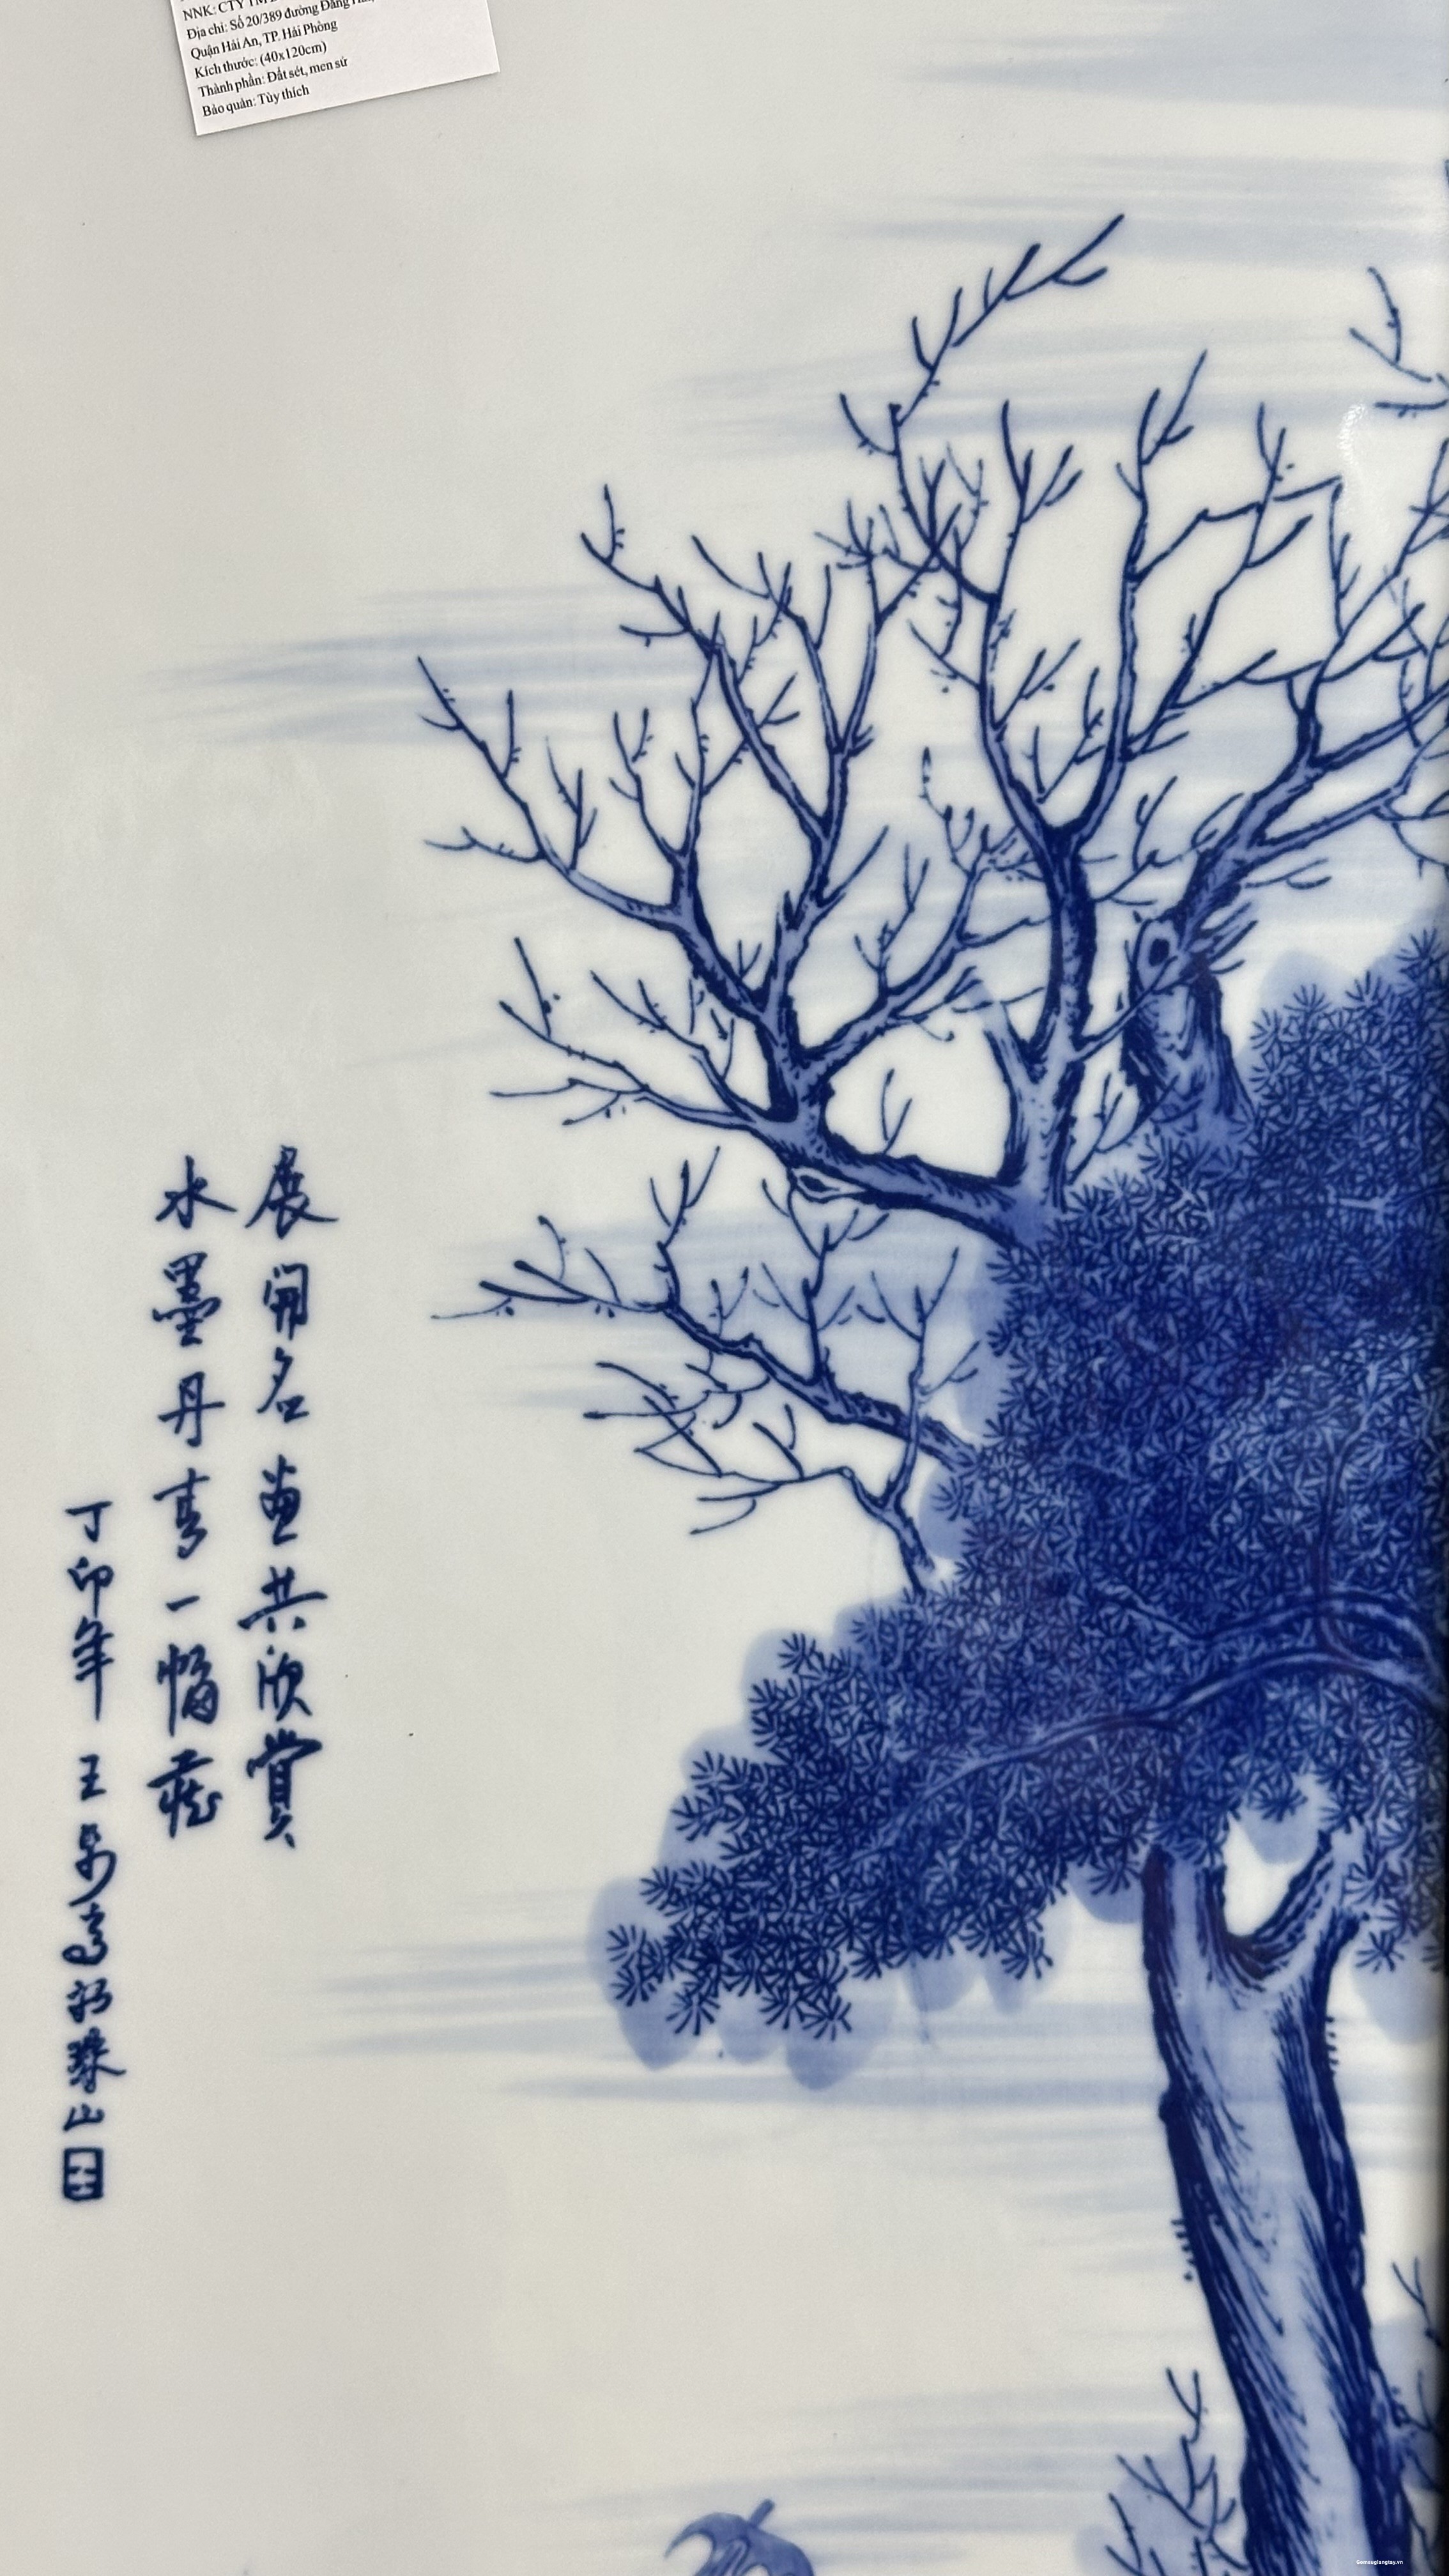 NNK: CTY TM
Địa chỉ: Số 20/389 đường Đằng Hải,
Quận Hải An, TP. Hải Phòng
Kích thước: (40x120cm)
Thành phần: Đất sét, men sứ
Bảo quản: Tùy thích
展開名畫共欣賞
水墨丹青一幅藏
丁卯年 王步 珠山
Gomsugiangtay.vn